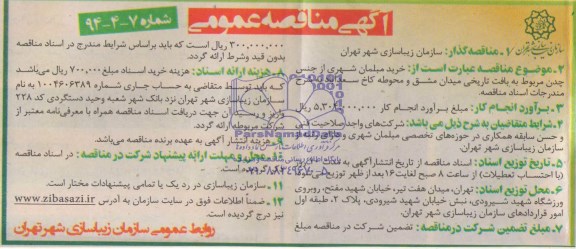 آگهی مناقصه عمومی
شماره ۷-۴-۹۴
سازمان زیباسازی شهر تهران
۱- مناقصه‌گذار: سازمان زیباسازی شهر تهران
۲-موضوع مناقصه عبارت است از: خرید مبلمان شهری از جنس
چدن مربوط به بافت تاریخی میدان مشق و محوطه کاخ
مندرجات اسناد مناقصه.
۳-برآورد انجام کار: مبلغ برآورد انجام کار ریال
۴-شرایط متقاضیان به شرح ذیل می باشد: شرکت‌های واجد صلاحیت
و حسن سابقه همکاری در حوزه‌های تخصصی مبلمان شهری
سازمان زیباسازی شهر تهران.
۵- تاریخ توزیع اسناد: اسناد مناقصه از تاریخ انتشار آگهی به مدت
(با احتساب تعطیلات) از ساعت ۸ صبح لغایت ۱۶ بعد از ظهر توزیع می‌شود
۶-محل توزیع اسناد: تهران، میدان هفت تیر، خیابان شهید مفتح، روبروی
ورزشگاه شهید شیرودی، نبش خیابان شهید شیرودی، پلاک ۲، طبقه اول
امور قراردادهای سازمان زیباسازی شهر تهران.
۷-مبلغ تضمین شرکت در مناقصه: تضمین شرکت در مناقصه مبلغ
۳۰۰,۰۰۰,۰۰۰ ریال است که باید براساس شرایط مندرج در اسناد مناقصه
بدون قید وشرط ارائه گردد.
۸-هزینه ارائه اسناد: هزینه خرید اسناد مبلغ ۷۰۰,۰۰۰ ریال می‌باشد
که باید توسط متقاضی به حساب جاری شماره ۱۰۰۴۶۰۶۳۸۹ به نام
سازمان زیباسازی شهر تهران نزد بانک شهر شعبه وحید دستگردی کد ۲۳۸
واریز و رسید آن جهت دریافت اسناد مناقصه همراه با معرفی‌نامه معتبر از
شرکت مربوطه ارائه گردد.
هزینه انتشار آگهی به عهده برنده مناقصه می‌باشد.
محل و مهلت ارائه پیشنهاد شرکت در مناقصه: در اسناد مناقصه
۱۱- سازمان زیباسازی در رد یک یا تمامی پیشنهادات مختار است.
ضمناً اطلاعات فوق در سایت سازمان به آدرس www.zibasazi.ir
نیز درج گردیده است.
روابط عمومی سازمان زیباسازی شهر تهران
ParsNamadData